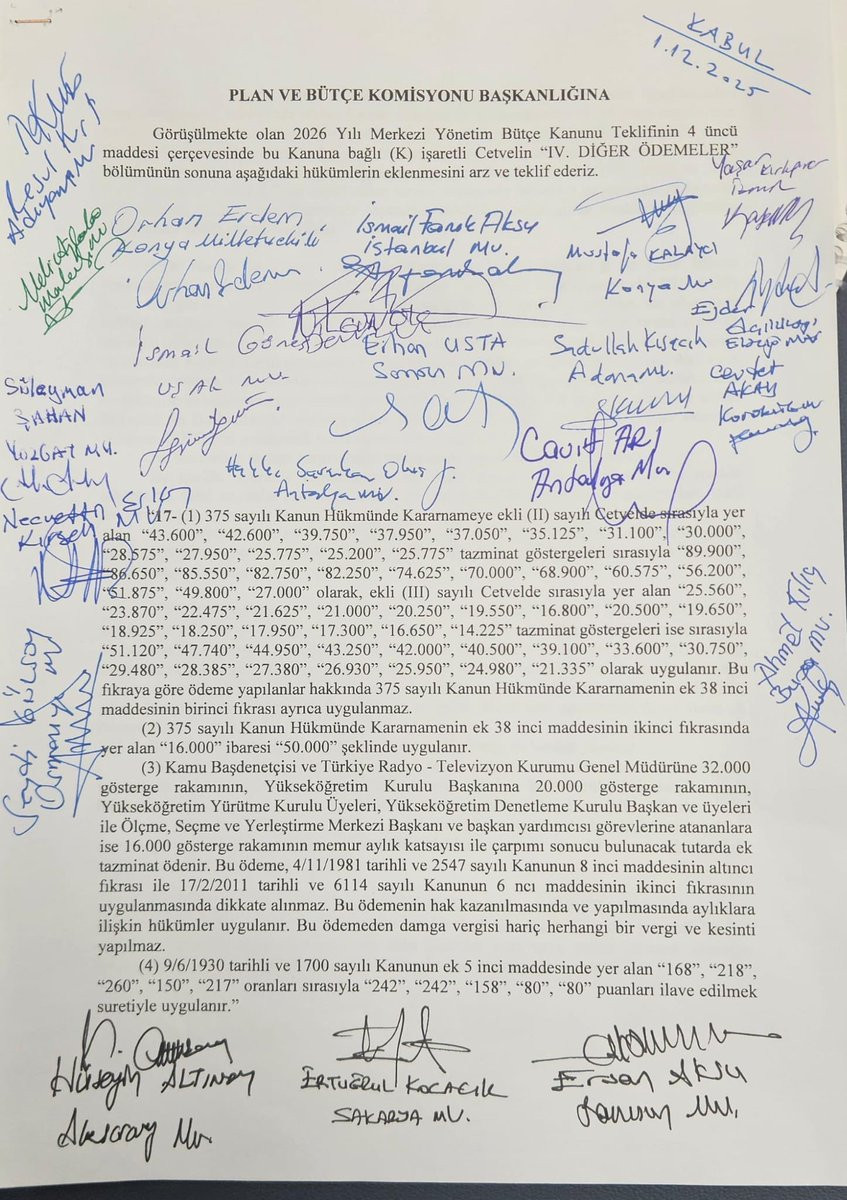 KABUL
1.12.2025
PLAN VE BÜTÇE KOMİSYONU BAŞKANLIĞINA
Görüşülmekte olan 2026 Yılı Merkezi Yönetim Bütçe Kanunu Teklifinin 4 üncü
maddesi çerçevesinde bu Kanuna bağlı (K) işaretli Cetvelin “IV. DİĞER ÖDEMELER”
bölümünün sonuna aşağıdaki hükümlerin eklenmesini arz ve teklif ederiz.
Orhan Erdem
Konya Milletvekili
İsmail Faruk Aksu
İstanbul Mv.
Mustafa KALAYCI
Konya Mv
Yaşar
İzmir
Adıyaman
İsmail Güneş
UŞAK MV.
Erhan USTA
Samsun MV.
Sadullah Kısacık
Adana Mv.
Cevdet
AKAY
Süleyman
ŞAHAN
YOZGAT MV.
Cavit ARI
Antalya Mv
Antalya Mv.
“17- (1) 375 sayılı Kanun Hükmünde Kararnameye ekli (II) sayılı Cetvelde sırasıyla yer
alan “43.600”, “42.600”, “39.750”, “37.950”, “37.050”, “35.125”, “31.100”, “30.000”,
“28.575”, “27.950”, “25.775”, “25.200”, “25.775” tazminat göstergeleri sırasıyla “89.900”,
“86.650”, “85.550”, “82.750”, “82.250”, “74.625”, “70.000”, “68.900”, “60.575”, “56.200”,
“51.875”, “49.800”, “27.000” olarak, ekli (III) sayılı Cetvelde sırasıyla yer alan “25.560”,
“23.870”, “22.475”, “21.625”, “21.000”, “20.250”, “19.550”, “16.800”, “20.500”, “19.650”,
“18.925”, “18.250”, “17.950”, “17.300”, “16.650”, “14.225” tazminat göstergeleri ise sırasıyla
“51.120”, “47.740”, “44.950”, “43.250”, “42.000”, “40.500”, “39.100”, “33.600”, “30.750”,
“29.480”, “28.385”, “27.380”, “26.930”, “25.950”, “24.980”, “21.335” olarak uygulanır. Bu
fıkraya göre ödeme yapılanlar hakkında 375 sayılı Kanun Hükmünde Kararnamenin ek 38 inci
maddesinin birinci fıkrası ayrıca uygulanmaz.
(2) 375 sayılı Kanun Hükmünde Kararnamenin ek 38 inci maddesinin ikinci fıkrasında
yer alan “16.000” ibaresi “50.000” şeklinde uygulanır.
(3) Kamu Başdenetçisi ve Türkiye Radyo - Televizyon Kurumu Genel Müdürüne 32.000
gösterge rakamının, Yükseköğretim Kurulu Başkanına 20.000 gösterge rakamının,
Yükseköğretim Yürütme Kurulu Üyeleri, Yükseköğretim Denetleme Kurulu Başkan ve üyeleri
ile Ölçme, Seçme ve Yerleştirme Merkezi Başkanı ve başkan yardımcısı görevlerine atananlara
ise 16.000 gösterge rakamının memur aylık katsayısı ile çarpımı sonucu bulunacak tutarda ek
tazminat ödenir. Bu ödeme, 4/11/1981 tarihli ve 2547 sayılı Kanunun 8 inci maddesinin altıncı
fıkrası ile 17/2/2011 tarihli ve 6114 sayılı Kanunun 6 ncı maddesinin ikinci fıkrasının
uygulanmasında dikkate alınmaz. Bu ödemenin hak kazanılmasında ve yapılmasında aylıklara
ilişkin hükümler uygulanır. Bu ödemeden damga vergisi hariç herhangi bir vergi ve kesinti
yapılmaz.
(4) 9/6/1930 tarihli ve 1700 sayılı Kanunun ek 5 inci maddesinde yer alan “168”, “218”,
“260”, “150”, “217” oranları sırasıyla “242”, “242”, “158”, “80”, “80” puanları ilave edilmek
suretiyle uygulanır.”
Ahmet Kılıç
Bursa MV.
Hüseyin ALTINSOY
Aksaray Mv.
ERTUĞRUL KOCACIK
SAKARYA MV.
Ersan AKSU
Samsun Mv.